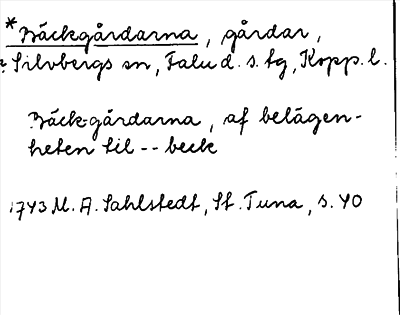 *Bäckgårdarna, gårdar,
Silvbergs sn, Falu d. s. tg, Kopp. l.
Bäck-gårdarna, af belägen-
heten til -- beck
1743 M. A. Sahlstedt, St. Tuna, s. 40